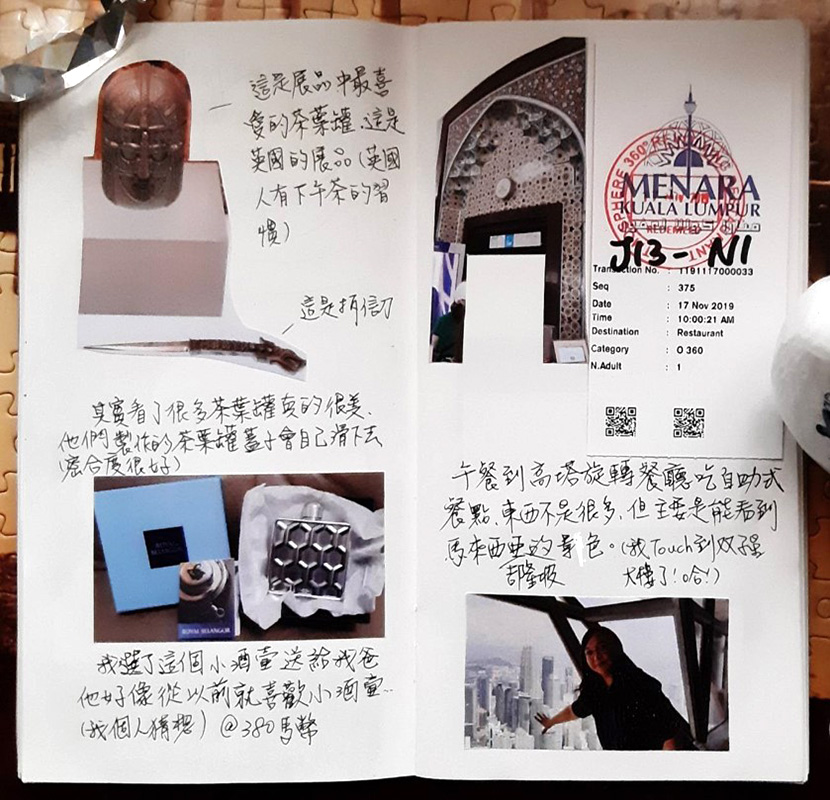 這是展品中最喜
愛的茶葉罐.這是
英國的展品(英國
人有下午茶的習
慣)
這是拆信刀
其實看了很多茶葉罐真的很美、
他們製作的茶葉罐蓋子會自己滑下去
(密合度很好)
ROYAL
SELANGOR
ROYAL SELANGOR
我選了這個小酒壺送給我爸
他好像從以前就喜歡小酒壺...
(我個人猜想) @380馬幣
MENARA
KUALA LUMPUR
REDEEMED
J13-N1
Transaction No. : 1191117000033
Seq : 375
Date : 17 Nov 2019
Time : 10:00:21 AM
Destination : Restaurant
Category : O 360
N.Adult : 1
午餐到高塔旋轉餐廳吃自助式
餐點、東西不是很多,但主要是能看到
馬來西亞的景色。(我Touch到双子星
吉隆坡 大樓了!哈!)